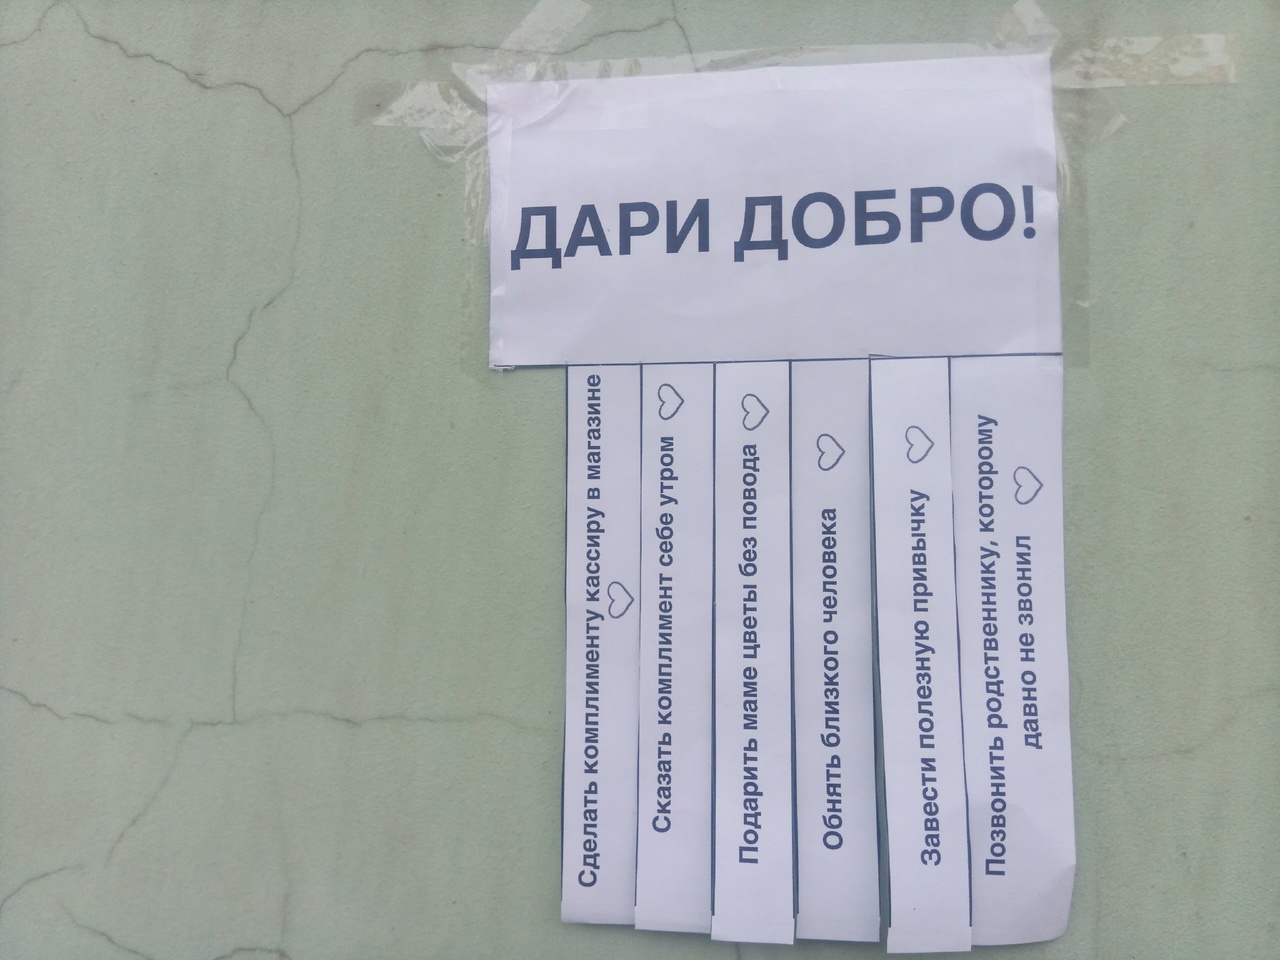 ДАРИ ДОБРО!
Сделать комплименту кассиру в магазине
Сказать комплимент себе утром
Подарить маме цветы без повода
Обнять близкого человека
Завести полезную привычку
Позвонить родственнику, которому
давно не звонил